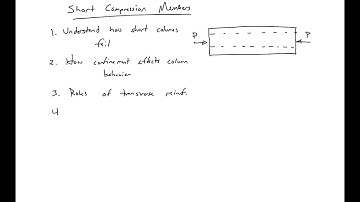 Short Compression Members
1. Understand how short columns
fail
P
P
2. How confinement affects column
behavior
3. Roles of transverse reinf.
4